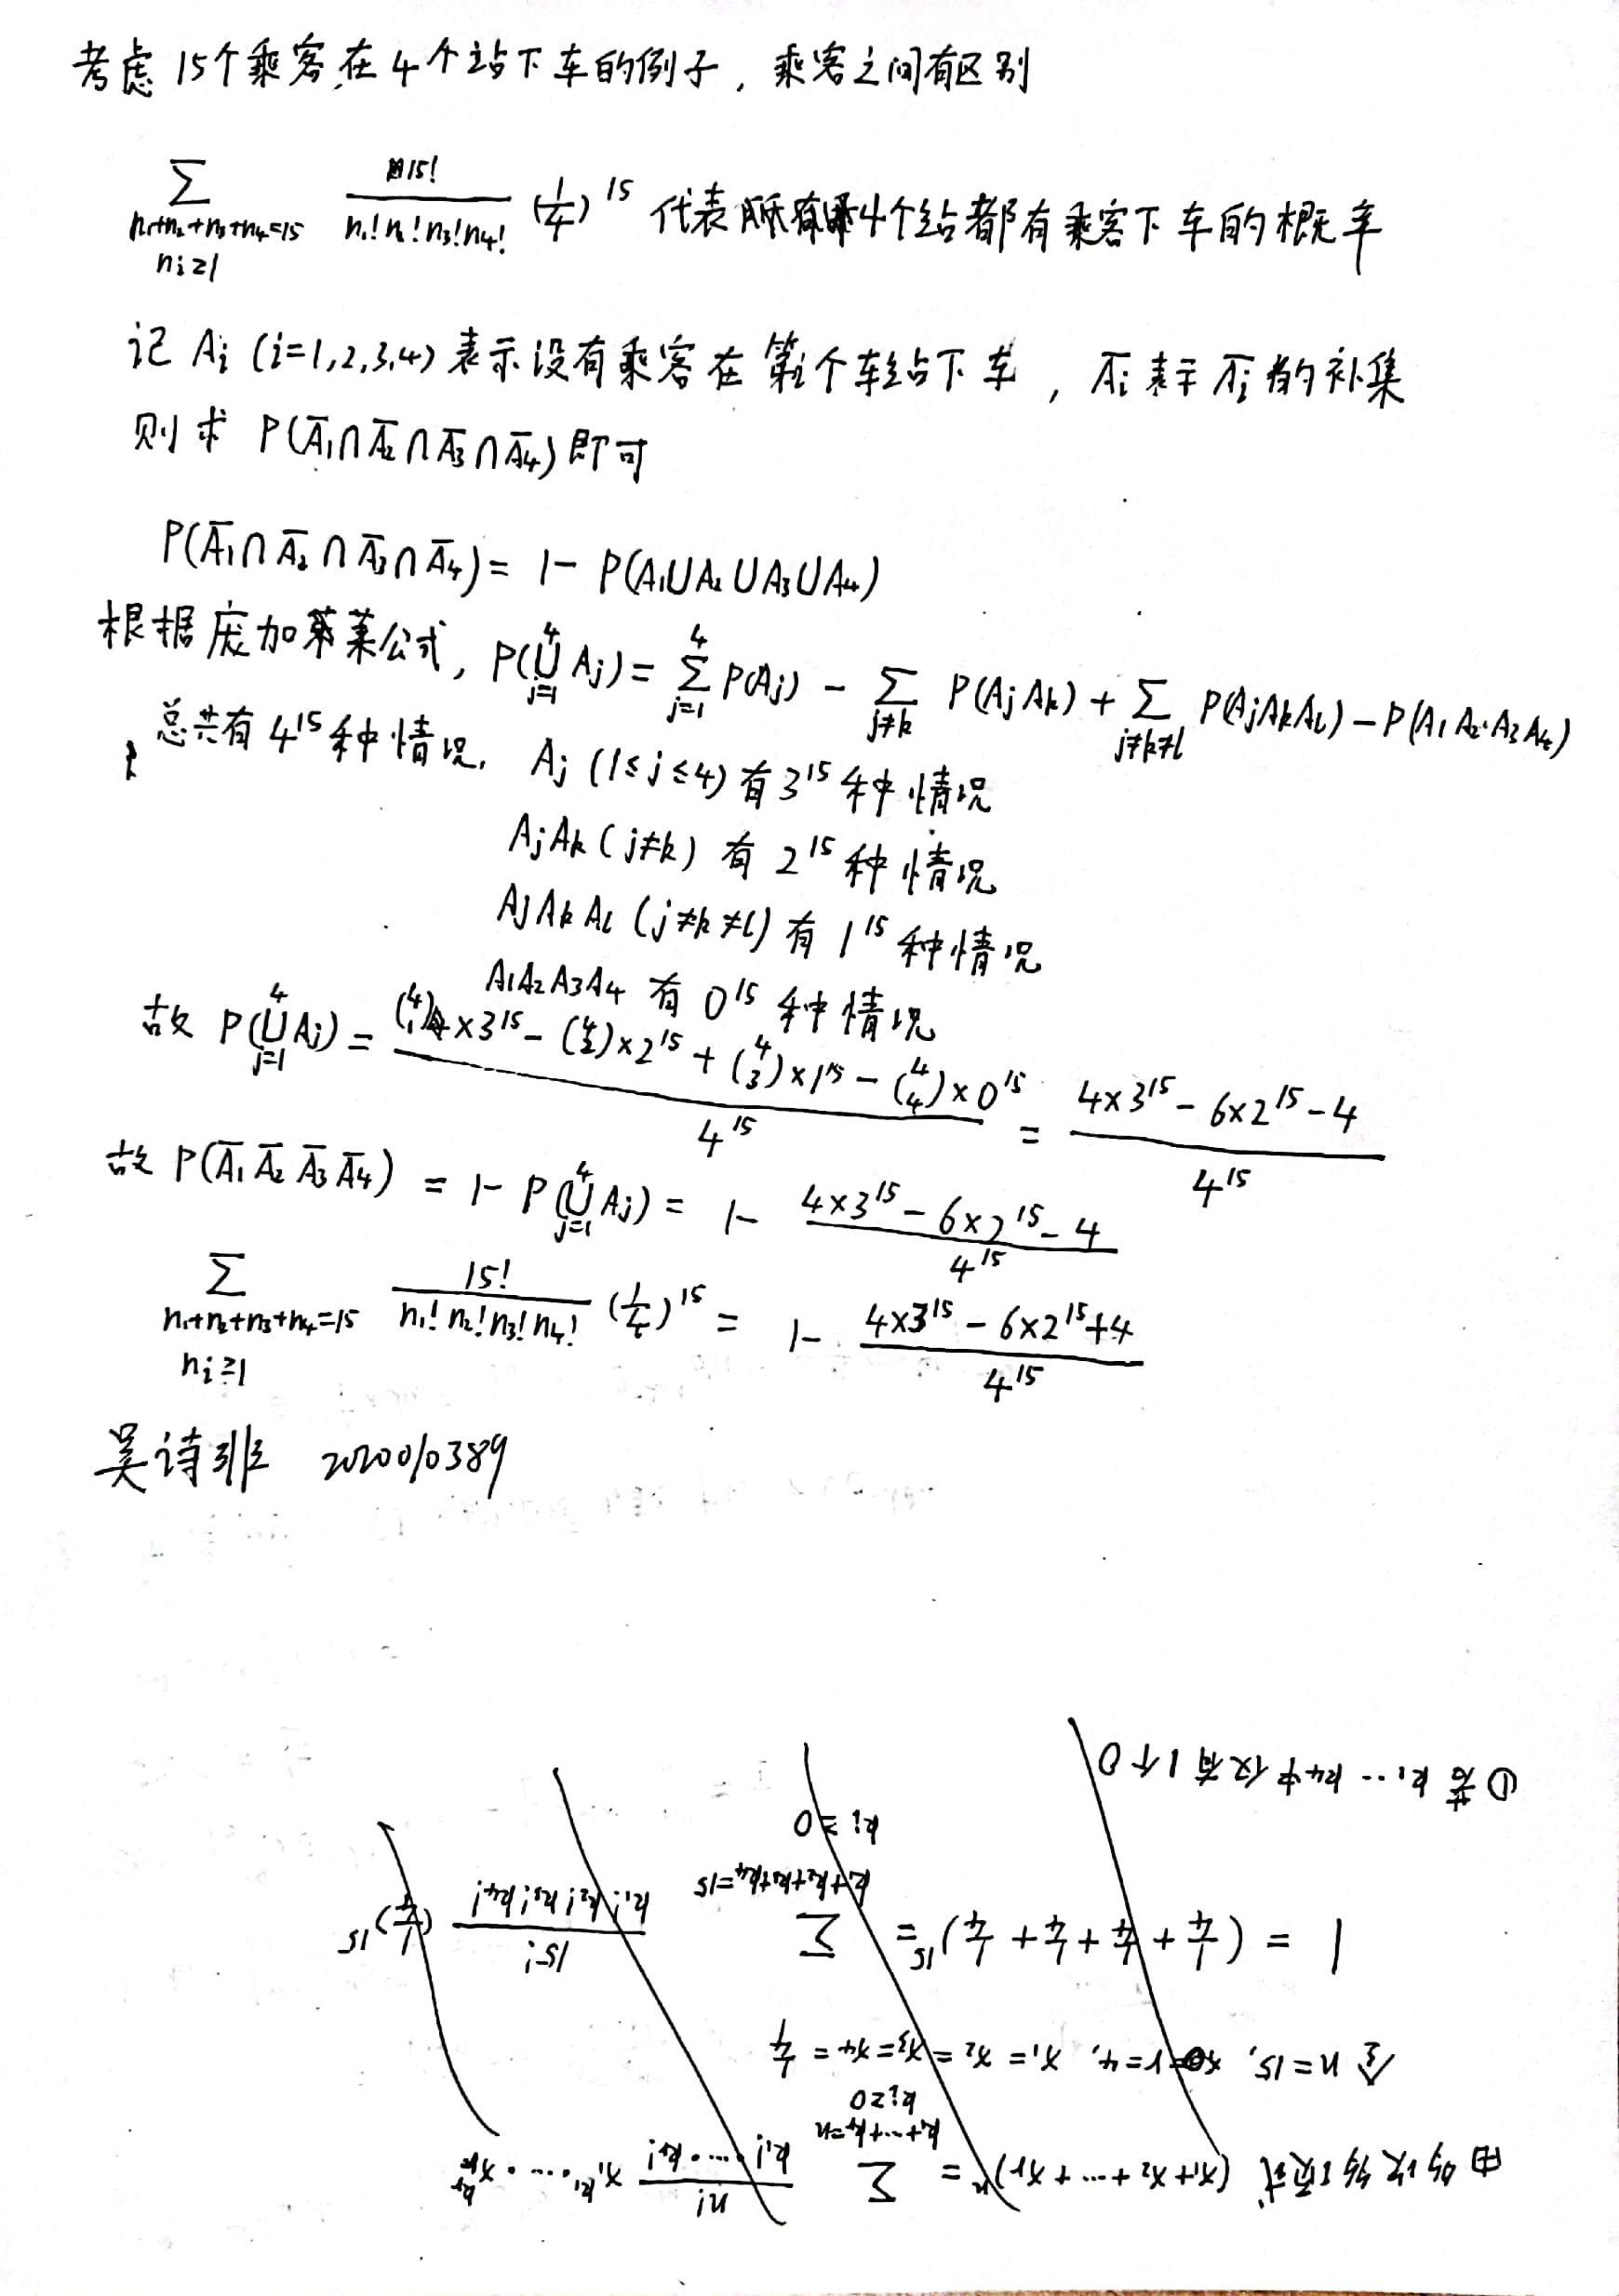 考虑 15个乘客在4个站下车的例子，乘客之间有区别
∑_{n₁+n₂+n₃+n₄=15, nᵢ≥1} 15!/(n₁!n₂!n₃!n₄!) (1/4)^15 代表 4个站都有乘客下车的概率
记 Aᵢ (i=1,2,3,4) 表示没有乘客在第i个车站下车，A̅ᵢ表示 A̅ᵢ 的补集
则求 P(A̅₁∩A̅₂∩A̅₃∩A̅₄)即可
P(A̅₁∩A̅₂∩A̅₃∩A̅₄)= 1- P(A₁∪A₂∪A₃∪A₄)
根据庞加莱公式, P(⋃_{j=1}^{4} Aj)= ∑_{j=1}^{4} P(Aj) - ∑_{j≠k} P(AjAk) + ∑_{j≠k≠l} P(AjAkAl) - P(A₁A₂A₃A₄)
总共有 4^15 种情况. Aj (1≤j≤4) 有3^15 种情况
AjAk (j≠k) 有 2^15 种情况
AjAkAl (j≠k≠l) 有 1^15 种情况
A₁A₂A₃A₄ 有 0^15 种情况
故 P(⋃_{j=1}^{4} Aj) = [(4 1)×3^15 - (4 2)×2^15 + (4 3)×1^15 - (4 4)×0^15]/4^15 = (4×3^15 - 6×2^15 - 4)/4^15
故 P(A̅₁A̅₂A̅₃A̅₄) = 1- P(⋃_{j=1}^{4} Aj) = 1- (4×3^15 - 6×2^15 - 4)/4^15
∑_{n₁+n₂+n₃+n₄=15, nᵢ≥1} 15!/(n₁!n₂!n₃!n₄!) (1/4)^15 = 1- (4×3^15 - 6×2^15+4)/4^15
吴诗非 2020010389
由 多项式 (x₁+x₂+…+xr)^n = ∑_{k₁+…+kr=n, kᵢ≥0} n!/(k₁!·…·kr!) x₁^k₁·…·xr^kr
令 n=15, r=4, x₁=x₂=x₃=x₄=1/4
1 = (1/4+1/4+1/4+1/4)^15 = ∑_{k₁+k₂+k₃+k₄=15, kᵢ≥0} 15!/(k₁!k₂!k₃!k₄!) (1/4)^15
①若 k₁…k₄中仅有1个0